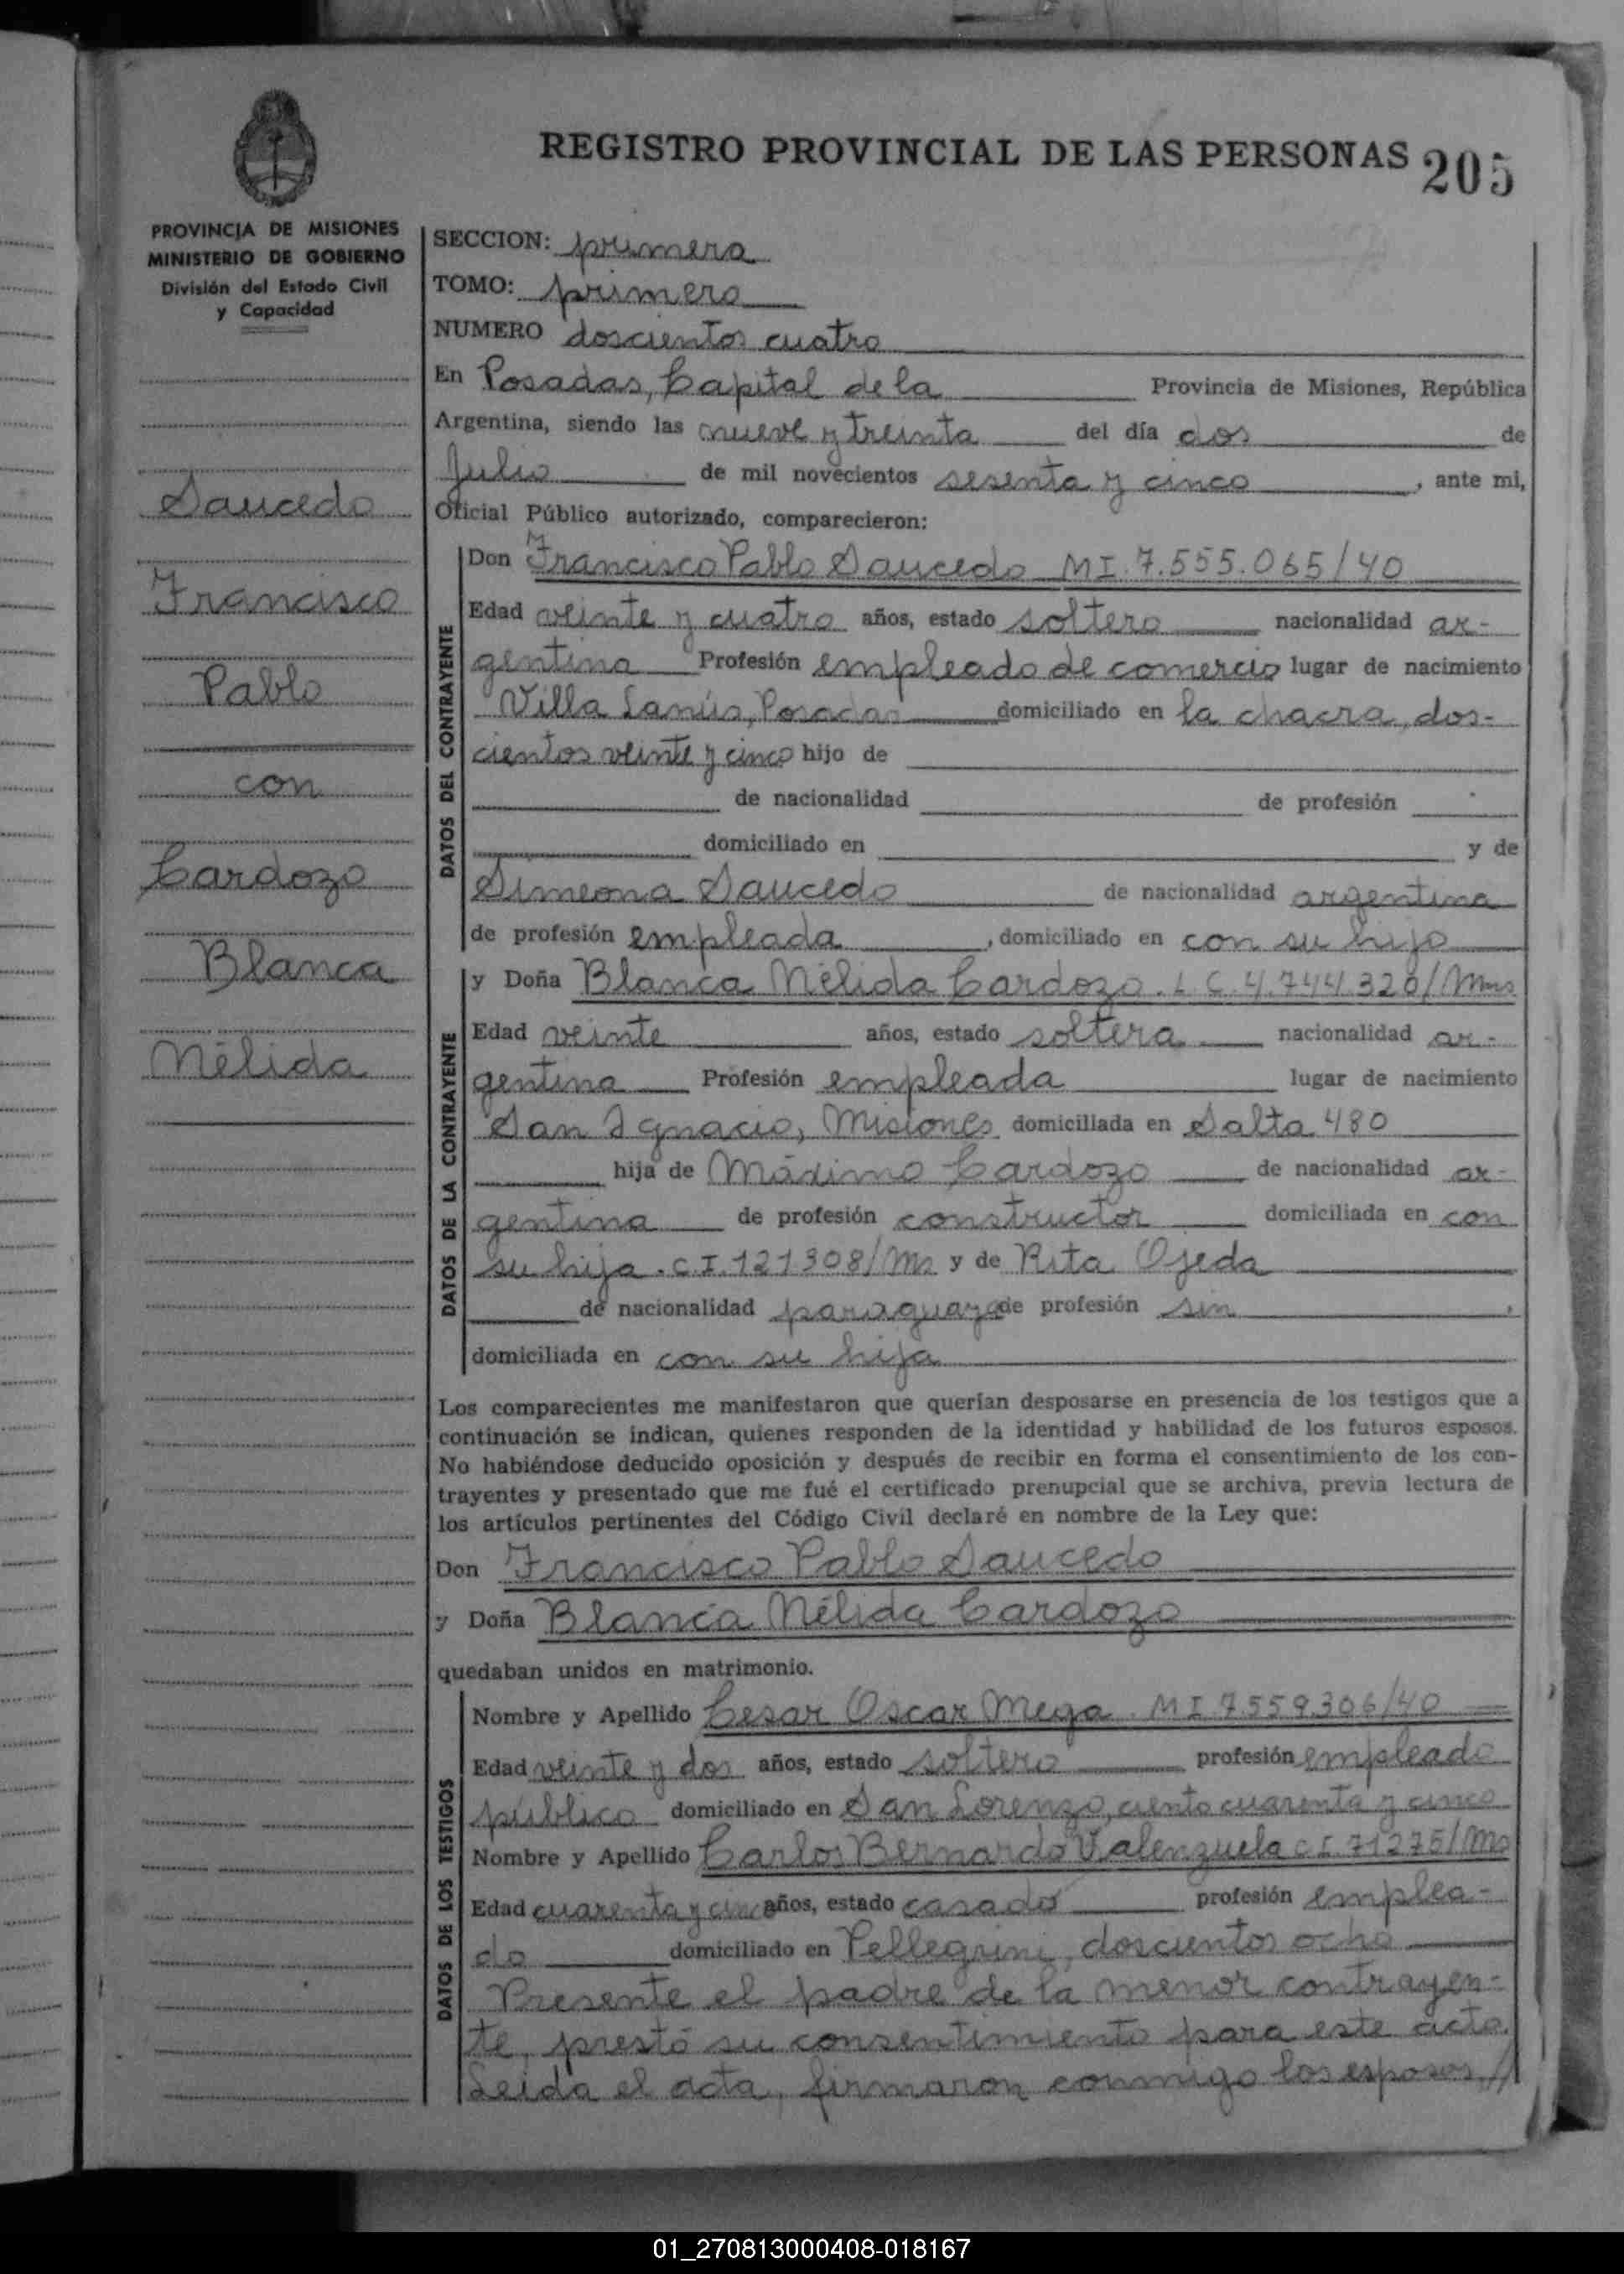 REGISTRO PROVINCIAL DE LAS PERSONAS 205
PROVINCIA DE MISIONES
MINISTERIO DE GOBIERNO
División del Estado Civil
y Capacidad
Saucedo
Francisco
Pablo
con
Cardozo
Blanca
Nélida
SECCION: primera
TOMO: primero
NUMERO doscientos cuatro
En Posadas, Capital de la Provincia de Misiones, República
Argentina, siendo las nueve y treinta del día dos de
Julio de mil novecientos sesenta y cinco, ante mi,
Oficial Público autorizado, comparecieron:
DATOS DEL CONTRAYENTE
Don Francisco Pablo Saucedo MI. 7.555.065/40
Edad veinte y cuatro años, estado soltero nacionalidad ar-
gentina Profesión empleado de comercio lugar de nacimiento
Villa Lanús, Posadas domiciliado en la chacra, dos-
cientos veinte y cinco hijo de
de nacionalidad de profesión
domiciliado en y de
Simeona Saucedo de nacionalidad argentina
de profesión empleada, domiciliado en con su hijo
DATOS DE LA CONTRAYENTE
y Doña Blanca Nélida Cardozo. L.C. 4.744.320/Mns
Edad veinte años, estado soltera nacionalidad ar-
gentina Profesión empleada lugar de nacimiento
San Ignacio, Misiones domiciliada en Salta 480
hija de Máximo Cardozo de nacionalidad ar-
gentina de profesión constructor domiciliada en con
su hija. C.I. 121308/Ms y de Rita Ojeda
de nacionalidad paraguaya de profesión sin,
domiciliada en con su hija
Los comparecientes me manifestaron que querían desposarse en presencia de los testigos que a
continuación se indican, quienes responden de la identidad y habilidad de los futuros esposos.
No habiéndose deducido oposición y después de recibir en forma el consentimiento de los con-
trayentes y presentado que me fué el certificado prenupcial que se archiva, previa lectura de
los artículos pertinentes del Código Civil declaré en nombre de la Ley que:
Don Francisco Pablo Saucedo
y Doña Blanca Nélida Cardozo
quedaban unidos en matrimonio.
DATOS DE LOS TESTIGOS
Nombre y Apellido Cesar Oscar Mega. MI 7.559.306/40
Edad veinte y dos años, estado soltero profesión empleado
público domiciliado en San Lorenzo, ciento cuarenta y cinco
Nombre y Apellido Carlos Bernardo Valenzuela C.I. 71275/Ms
Edad cuarenta y cinco años, estado casado profesión emplea-
do domiciliado en Pellegrini, doscientos ocho
Presente el padre de la menor contrayen-
te, prestó su consentimiento para este acto.
Leida el acta, firmaron conmigo los esposos,//
01_270813000408-018167